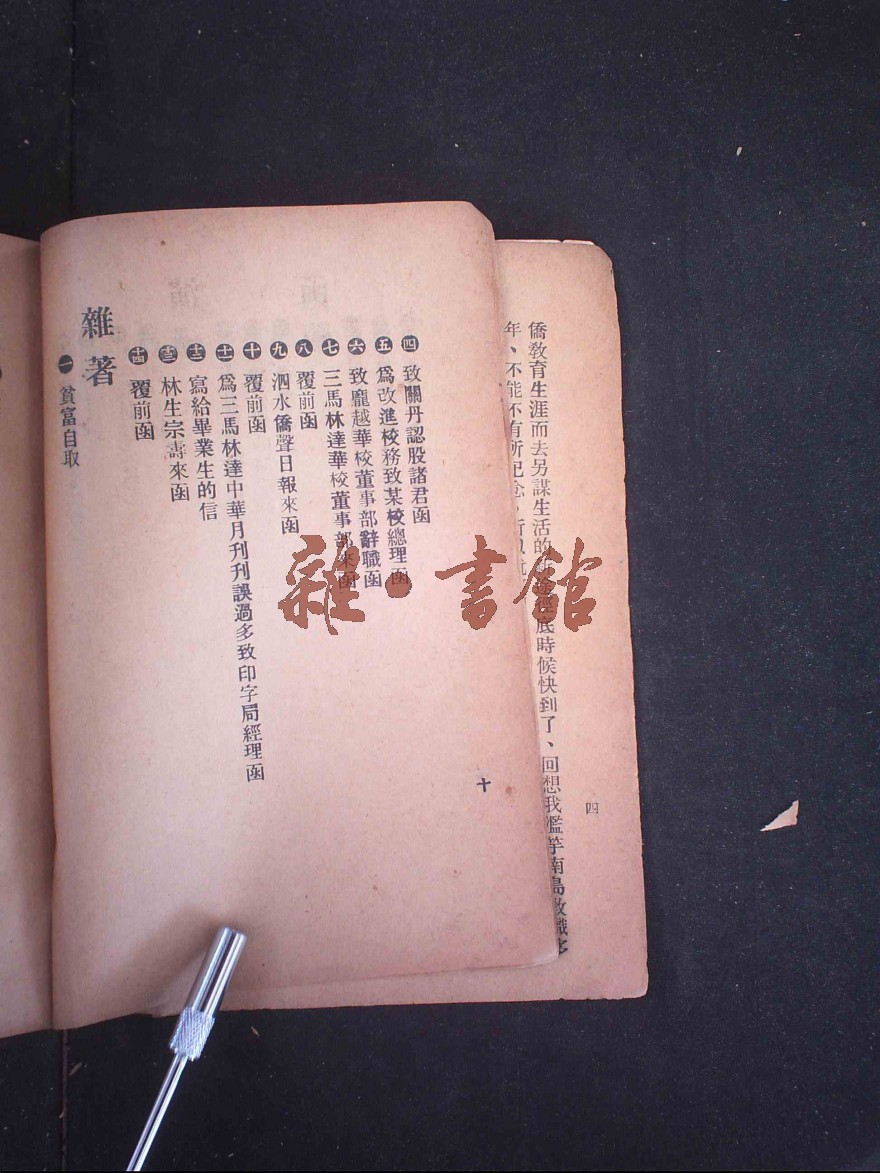 僑教育生涯而去另謀生活的
底時候快到了、回想我濫竽南島教職
年、不能不有所紀念
四
四 致關丹認股諸君函
五 爲改進校務致某校總理函
六 致龐越華校董事部辭職函
七 三馬林達華校董事部來函
八 覆前函
九 泗水僑聲日報來函
十 覆前函
十一 爲三馬林達中華月刊刊誤過多致印字局經理函
十二 寫給畢業生的信
十三 林生宗壽來函
十四 覆前函
雜著
一 貧富自取
十
雜·書館